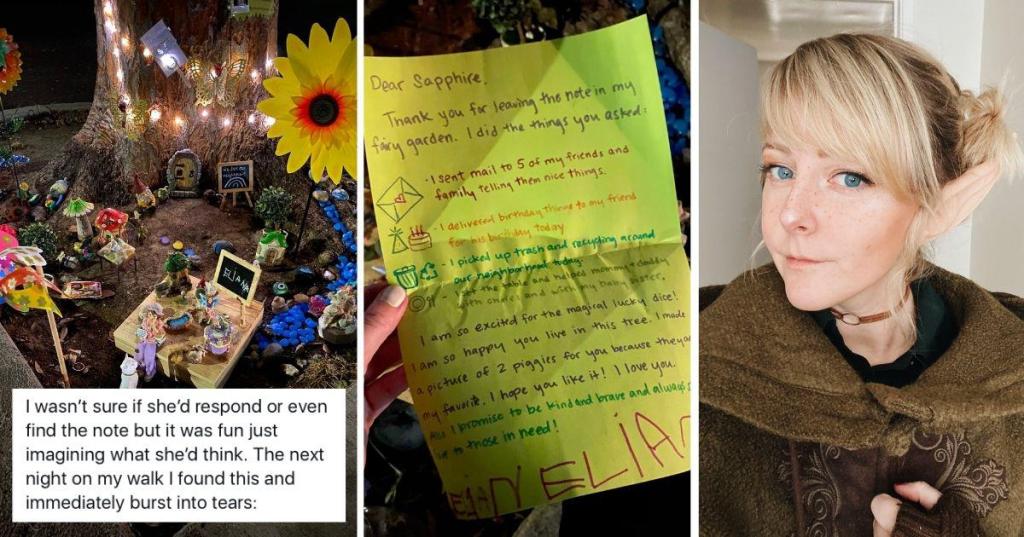 ELIANA
I wasn't sure if she'd respond or even
find the note but it was fun just
imagining what she'd think. The next
night on my walk I found this and
immediately burst into tears:
Dear Sapphire,
Thank you for leaving the note in my
fairy garden. I did the things you asked:
- I sent mail to 5 of my friends and
family telling them nice things.
- I delivered birthday things to my friend
for his birthday today
- I picked up trash and recycling around
our neighborhood today.
set the table and helped mommy+daddy
with chores and with my baby sister.
I am so excited for the magical lucky dice!
I am so happy you live in this tree. I made
a picture of 2 piggies for you because they
my favorite. I hope you like it! I love you.
Also I promise to be kind and brave and always
to those in need!
ELIA